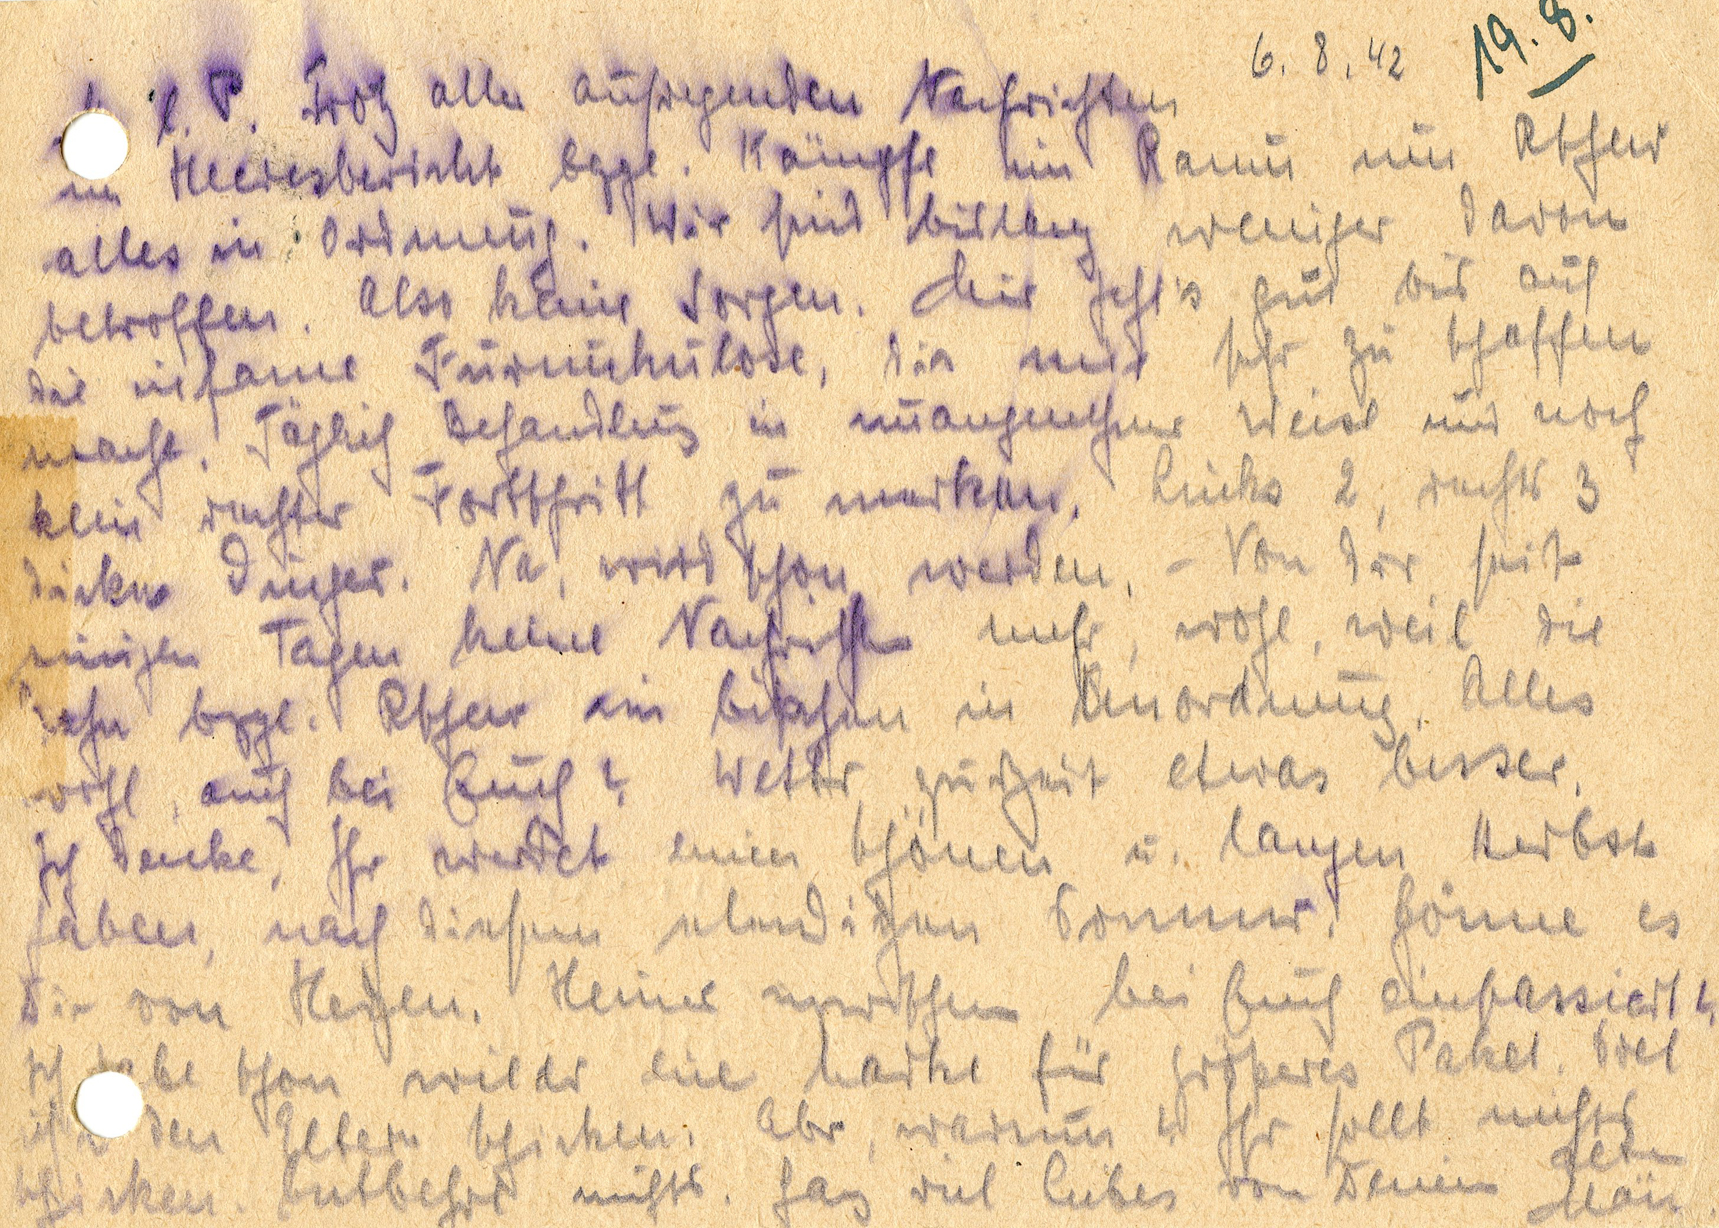 6.8.42 19.8.
l. P. Trotz aller aufregenden Nachrichten
im Heeresbericht bzgl. Kämpfe im Raum um Rshew
alles in Ordnung. Wir sind bislang weniger davon
betroffen. Also keine Sorgen. Mir geht's gut bis auf
die infame Furunkulose, die mir sehr zu schaffen
macht. Täglich Behandlung in unangenehmer Weise und noch
kein rechter Fortschritt zu merken. Links 2, rechts 3
dicke Dinger. Na, wird schon werden. – Von Dir seit
einigen Tagen keine Nachricht mehr, wohl, weil die
Bahn bzgl. Rshew ein bißchen in Unordnung. Alles
wohl auch bei Euch? Wetter zurzeit etwas besser.
Ich denke, Ihr werdet einen schönen u. langen Herbst
haben, nach diesem elendigen Sommer. Gönne es
Dir von Herzen. Heiner inzwischen bei Euch einpassiert?
Ich habe schon wieder eine Marke für größeres Paket. Soll
ich's den Eltern schicken. Aber, warum? Ihr sollt nichts
schicken. Entbehrt nichts. Ganz viel Liebes von Deinem